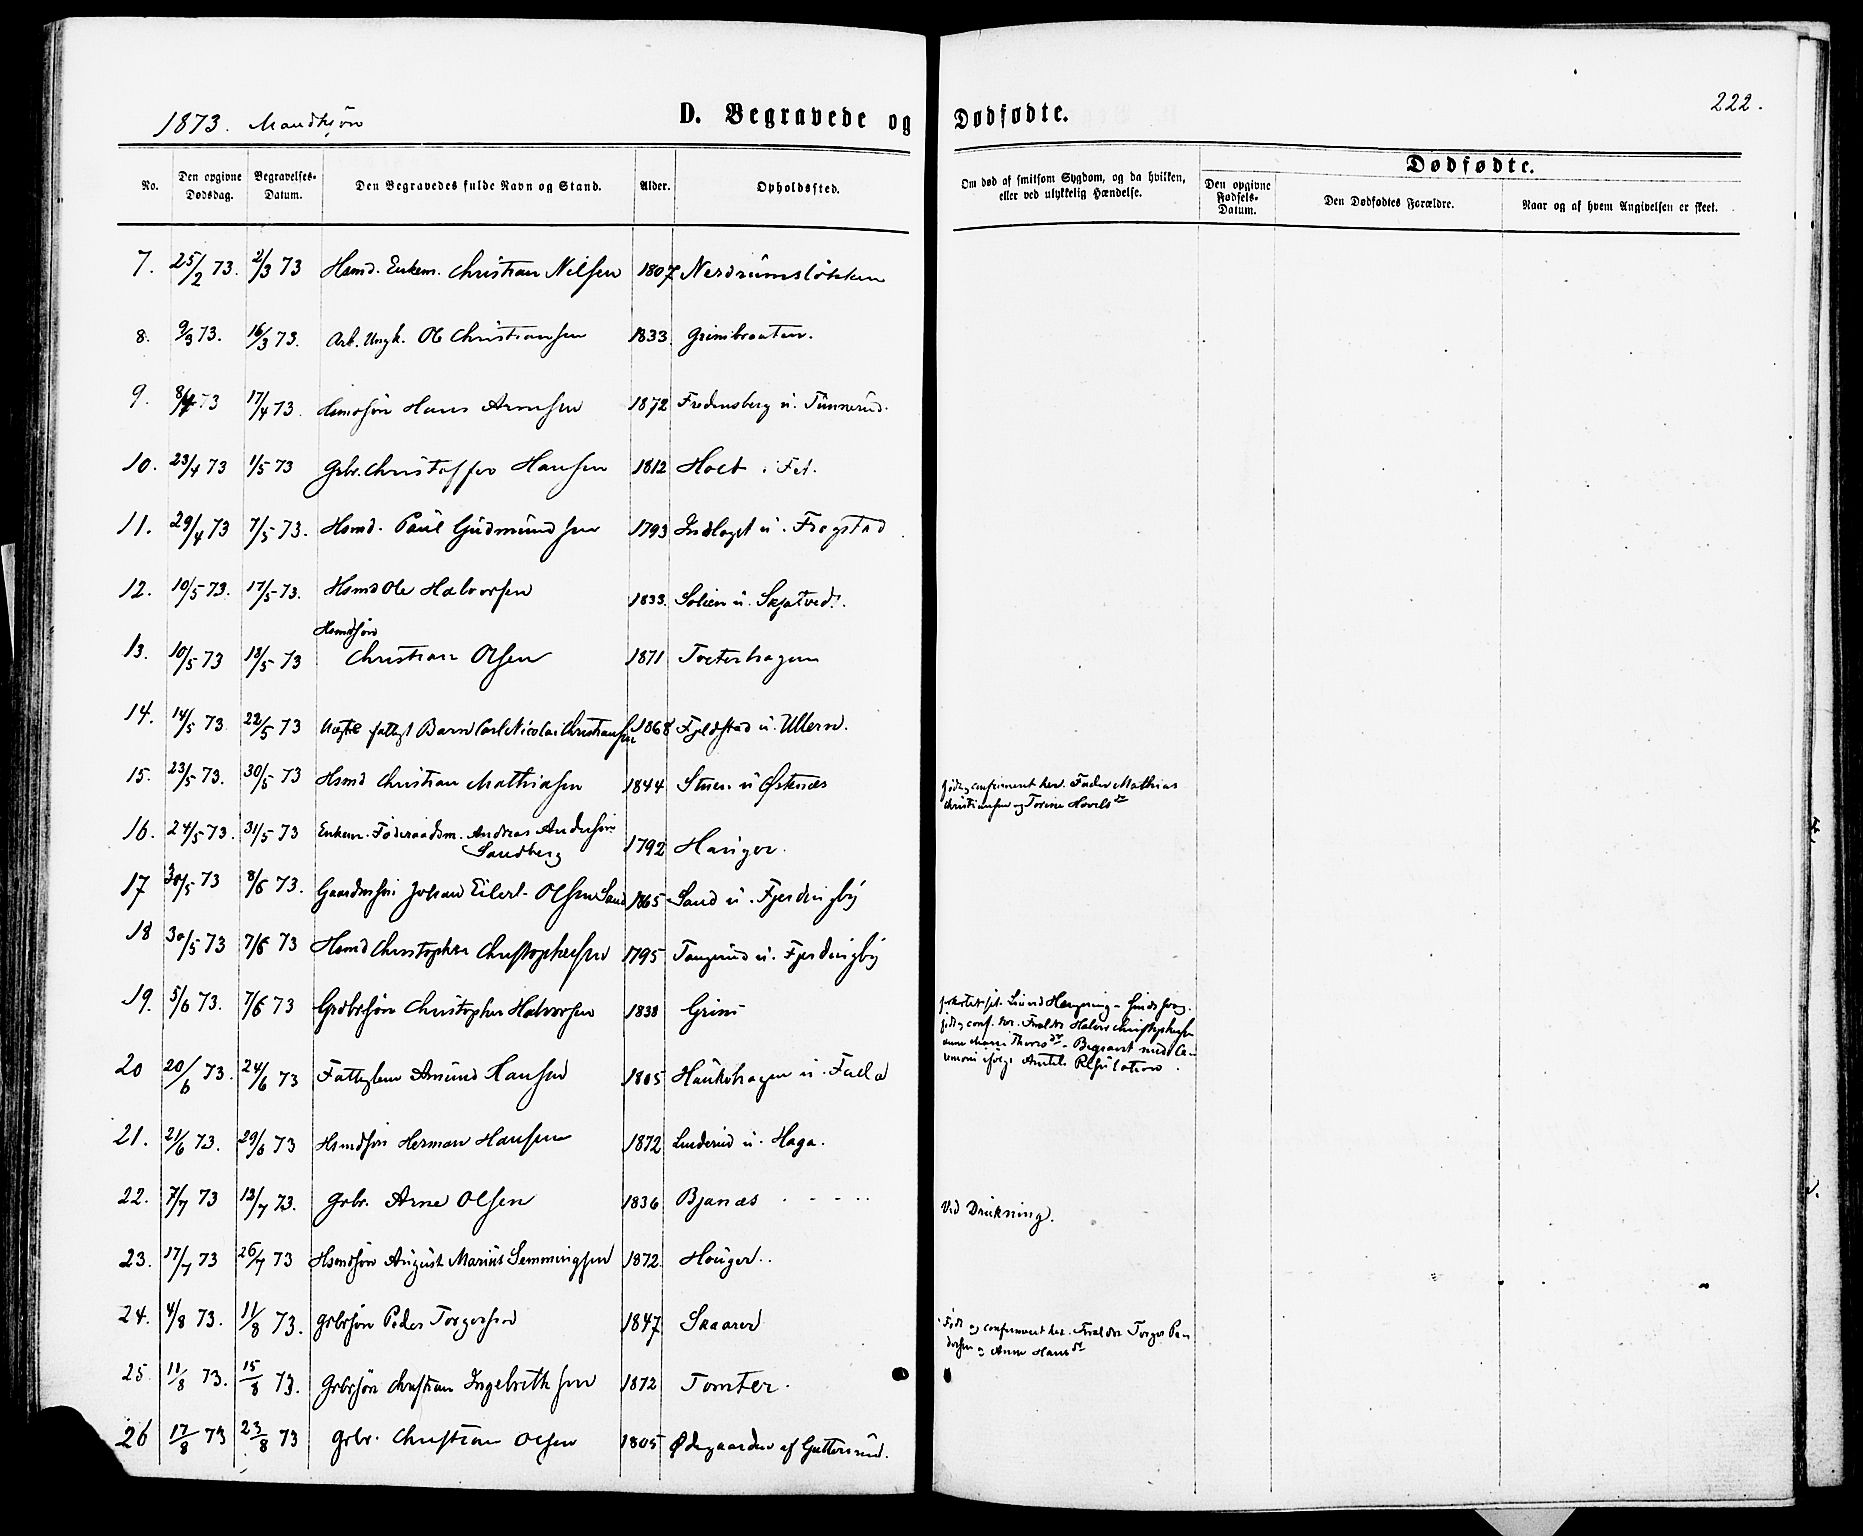 1873. Mandkjøn
D. Begravede og Dødfødte.
222.
No.
Den opgivne Dødsdag.
Begravelses-Datum.
Den Begravedes fulde Navn og Stand.
Alder.
Opholdssted.
Om død af smitsom Sygdom, og da hvilken, eller ved ulykkelig Hændelse.
Dødfødte.
Den opgivne Fødsels-Datum.
Den Dødfødtes Forældre.
Naar og af hvem Angivelsen er skeet.
7. 25/2 73. 2/3 73 Hsmd. Enkem. Christian Nilsen 1807 Nerdrumsløkken
8. 9/3 73. 16/3 73. Arb. Ungk. Ole Christiansen 1833. Grinibraaten.
9. 8/4 73 17/4 73. Hsmdsøn Hans Arnesen 1872 Fredensberg u. Tünnerud.
10. 23/4 73 1/5 73 Grbr. Christoffer Hansen 1812 Holt i Fet.
11. 29/4 73 7/5 73. Hsmd. Paul Gudmundsen 1793 Indlaget u. Frogstad
12. 10/5 73. 17/5 73. Hsmd Ole Halvorsen 1833. Solien u. Skjatved.
13. 10/5 73 18/5 73 Hsmdsøn
Christian Olsen 1871 Toeterhagen
14. 14/5 73 22/5 73 Uægte fattigt Barn Carl Nicolai Christiansen 1868 Fjeldstad u. Ullern.
15. 23/5 73. 30/5 73 Hsmd Christian Mathiasen 1844 Stuen u Østenæs
født og confirmeret her. Fader Mathias
Christiansen og Torine Hovelsdr
16. 24/5 73. 31/5 73 Enkem. Føderaadsm. Andreas Andersen
Sandberg 1792 Hauger.
17 30/5 73 8/6 73. Gaardmsøn Johan Eilert Olsen Sand 1865 Sand u. Fjerdingby
18 30/5 73 7/6 73 Hsmd Christopher Christophersen 1795 Tangerud u. Fjerdingby
19. 5/6 73. 7/6 73 Grdbrsøn Christopher Halvorsen 1838 Grini
Livved Hængning - Sindssvag.
født og conf. her. Forældre Halvor Christophersen
Anne Marie Thoresdr - Begravet med Ce-
remoni ifølge Amtets Resolution.
20 20/6 73. 24/6 73 Fattiglem Amund Hansen 1805 Haukehagen u. Falla
21. 21/6 73. 29/6 73 Hsmdsøn Herman Hansen 1872 Linderud u. Haga.
22. 7/7 73 13/7 73. Grbr. Arne Olsen 1836 Bjanæs - - - - -
Ved Drukning.
23. 17/7 73 26/7 73 Hsmdsøn August Marius Semmingsen 1872. Houger..
24. 4/8 73. 11/8 73. Grbrsøn Peder Torgersen 1847 Skaarer
Født og confirmeret her. Forældre Torger Pe-
dersen og Anne Hansdr
25. 11/8 73. 15/8 73. Grbrsøn Christian Ingebrethsen 1872 Tomter.
26 17/8 73 23/8 73 Grbr. Christian Olsen 1805 Ødegaarden af Guttersrud.